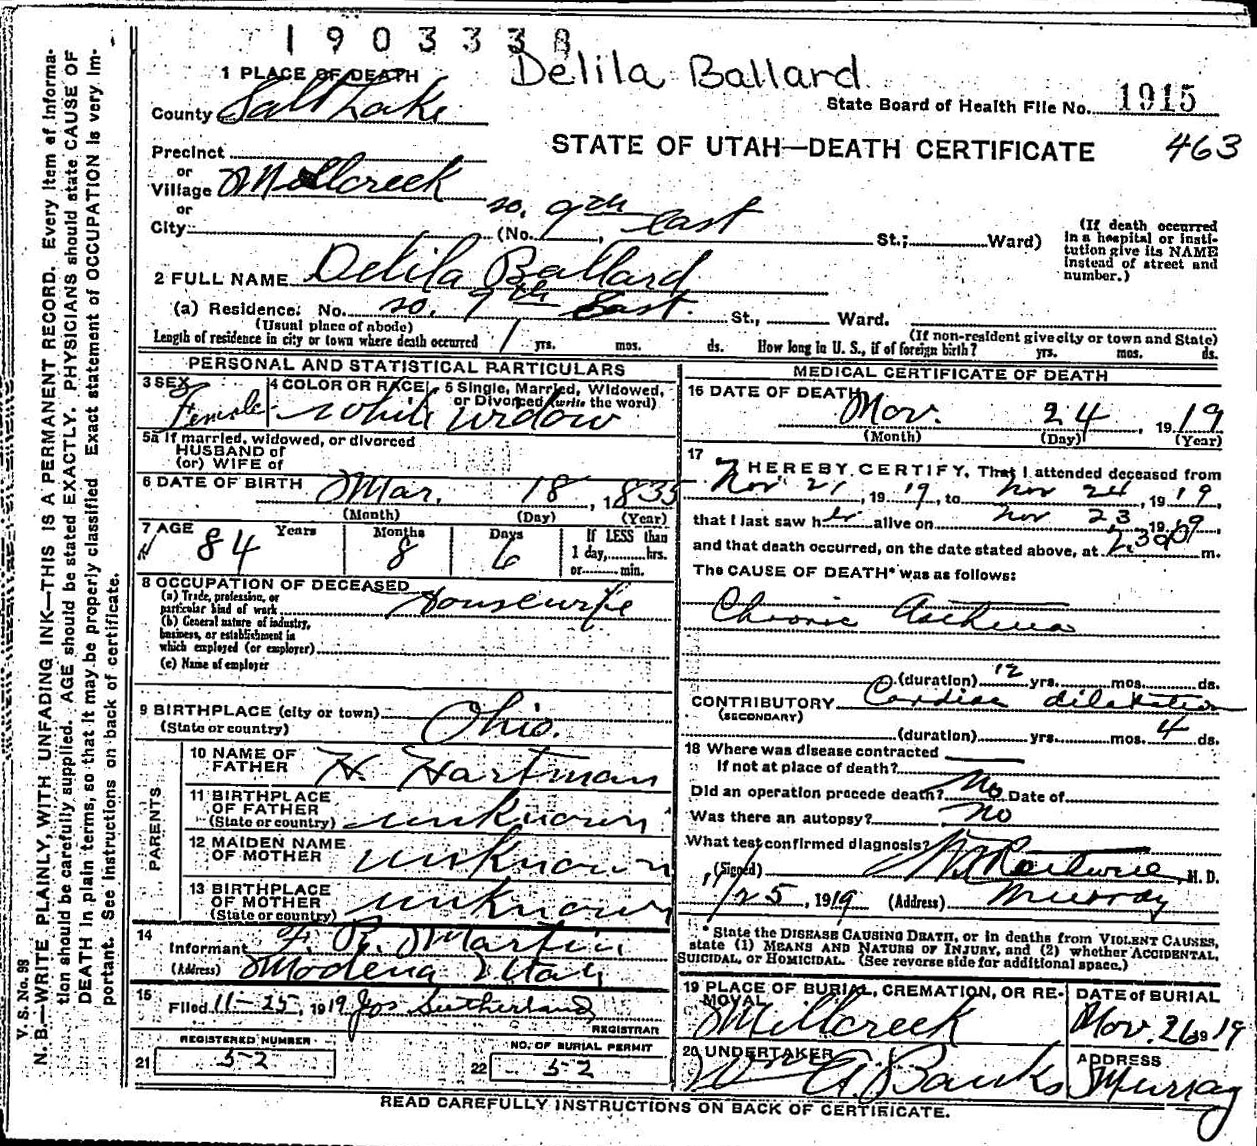 1903338
Delila Ballard
1 PLACE OF DEATH
County Salt Lake
State Board of Health File No. 1915
STATE OF UTAH—DEATH CERTIFICATE 463
Precinct
or
Village Millcreek
or
City (No. so. 9th East St.; Ward)
(If death occurred in a hospital or institution give its NAME instead of street and number.)
2 FULL NAME Delila Ballard
(a) Residence. No. so. 9th East. St., Ward.
(Usual place of abode) (If non-resident give city or town and State)
Length of residence in city or town where death occurred 1 yrs. mos. ds. How long in U. S., if of foreign birth? yrs. mos. ds.
PERSONAL AND STATISTICAL PARTICULARS
3 SEX Female
4 COLOR OR RACE White
5 Single, Married, Widowed, or Divorced (write the word) widow
5a If married, widowed, or divorced
HUSBAND of
(or) WIFE of
6 DATE OF BIRTH Mar. 18, 1835
(Month) (Day) (Year)
7 AGE Years Months Days If LESS than
84 8 6 1 day,.....hrs.
or.....min.
8 OCCUPATION OF DECEASED
(a) Trade, profession, or
particular kind of work Housewife
(b) General nature of industry,
business, or establishment in
which employed (or employer)
(c) Name of employer
9 BIRTHPLACE (city or town)
(State or country) Ohio.
PARENTS
10 NAME OF
FATHER H. Hartman
11 BIRTHPLACE
OF FATHER
(State or country) unknown
12 MAIDEN NAME
OF MOTHER unknown
13 BIRTHPLACE
OF MOTHER
(State or country) unknown
14
Informant F. R. Martin
(Address) Modena Utah
15
Filed 11-25, 1919 Jos Sutherland
REGISTRAR
REGISTERED NUMBER
21 52
NO. OF BURIAL PERMIT
22 52
MEDICAL CERTIFICATE OF DEATH
16 DATE OF DEATH
Nov. 24, 1919
(Month) (Day) (Year)
17
I HEREBY CERTIFY, That I attended deceased from
Nov 21, 1919, to Nov 24, 1919
that I last saw her alive on Nov 23, 1919,
and that death occurred, on the date stated above, at m.
The CAUSE OF DEATH* was as follows:
Chronic Asthma
(duration) 12 yrs. mos. ds.
CONTRIBUTORY Cardiac dilatation
(SECONDARY)
(duration) yrs. mos. 4 ds.
18 Where was disease contracted
If not at place of death?
Did an operation precede death? No Date of
Was there an autopsy? No
What test confirmed diagnosis?
(Signed) M. D.
11/25, 1919 (Address) Murray
*State the DISEASE CAUSING DEATH, or in deaths from VIOLENT CAUSES,
state (1) MEANS AND NATURE OF INJURY, and (2) whether ACCIDENTAL,
SUICIDAL, or HOMICIDAL. (See reverse side for additional space.)
19 PLACE OF BURIAL, CREMATION, OR REMOVAL
Millcreek
DATE of BURIAL
Nov. 26 1919
20 UNDERTAKER
W A Banks
ADDRESS
Murray
READ CAREFULLY INSTRUCTIONS ON BACK OF CERTIFICATE.
V. S. No. 98
N. B.—WRITE PLAINLY, WITH UNFADING INK—THIS IS A PERMANENT RECORD. Every item of information should be carefully supplied. AGE should be stated EXACTLY. PHYSICIANS should state CAUSE OF DEATH in plain terms, so that it may be properly classified. Exact statement of OCCUPATION is very important. See instructions on back of certificate.